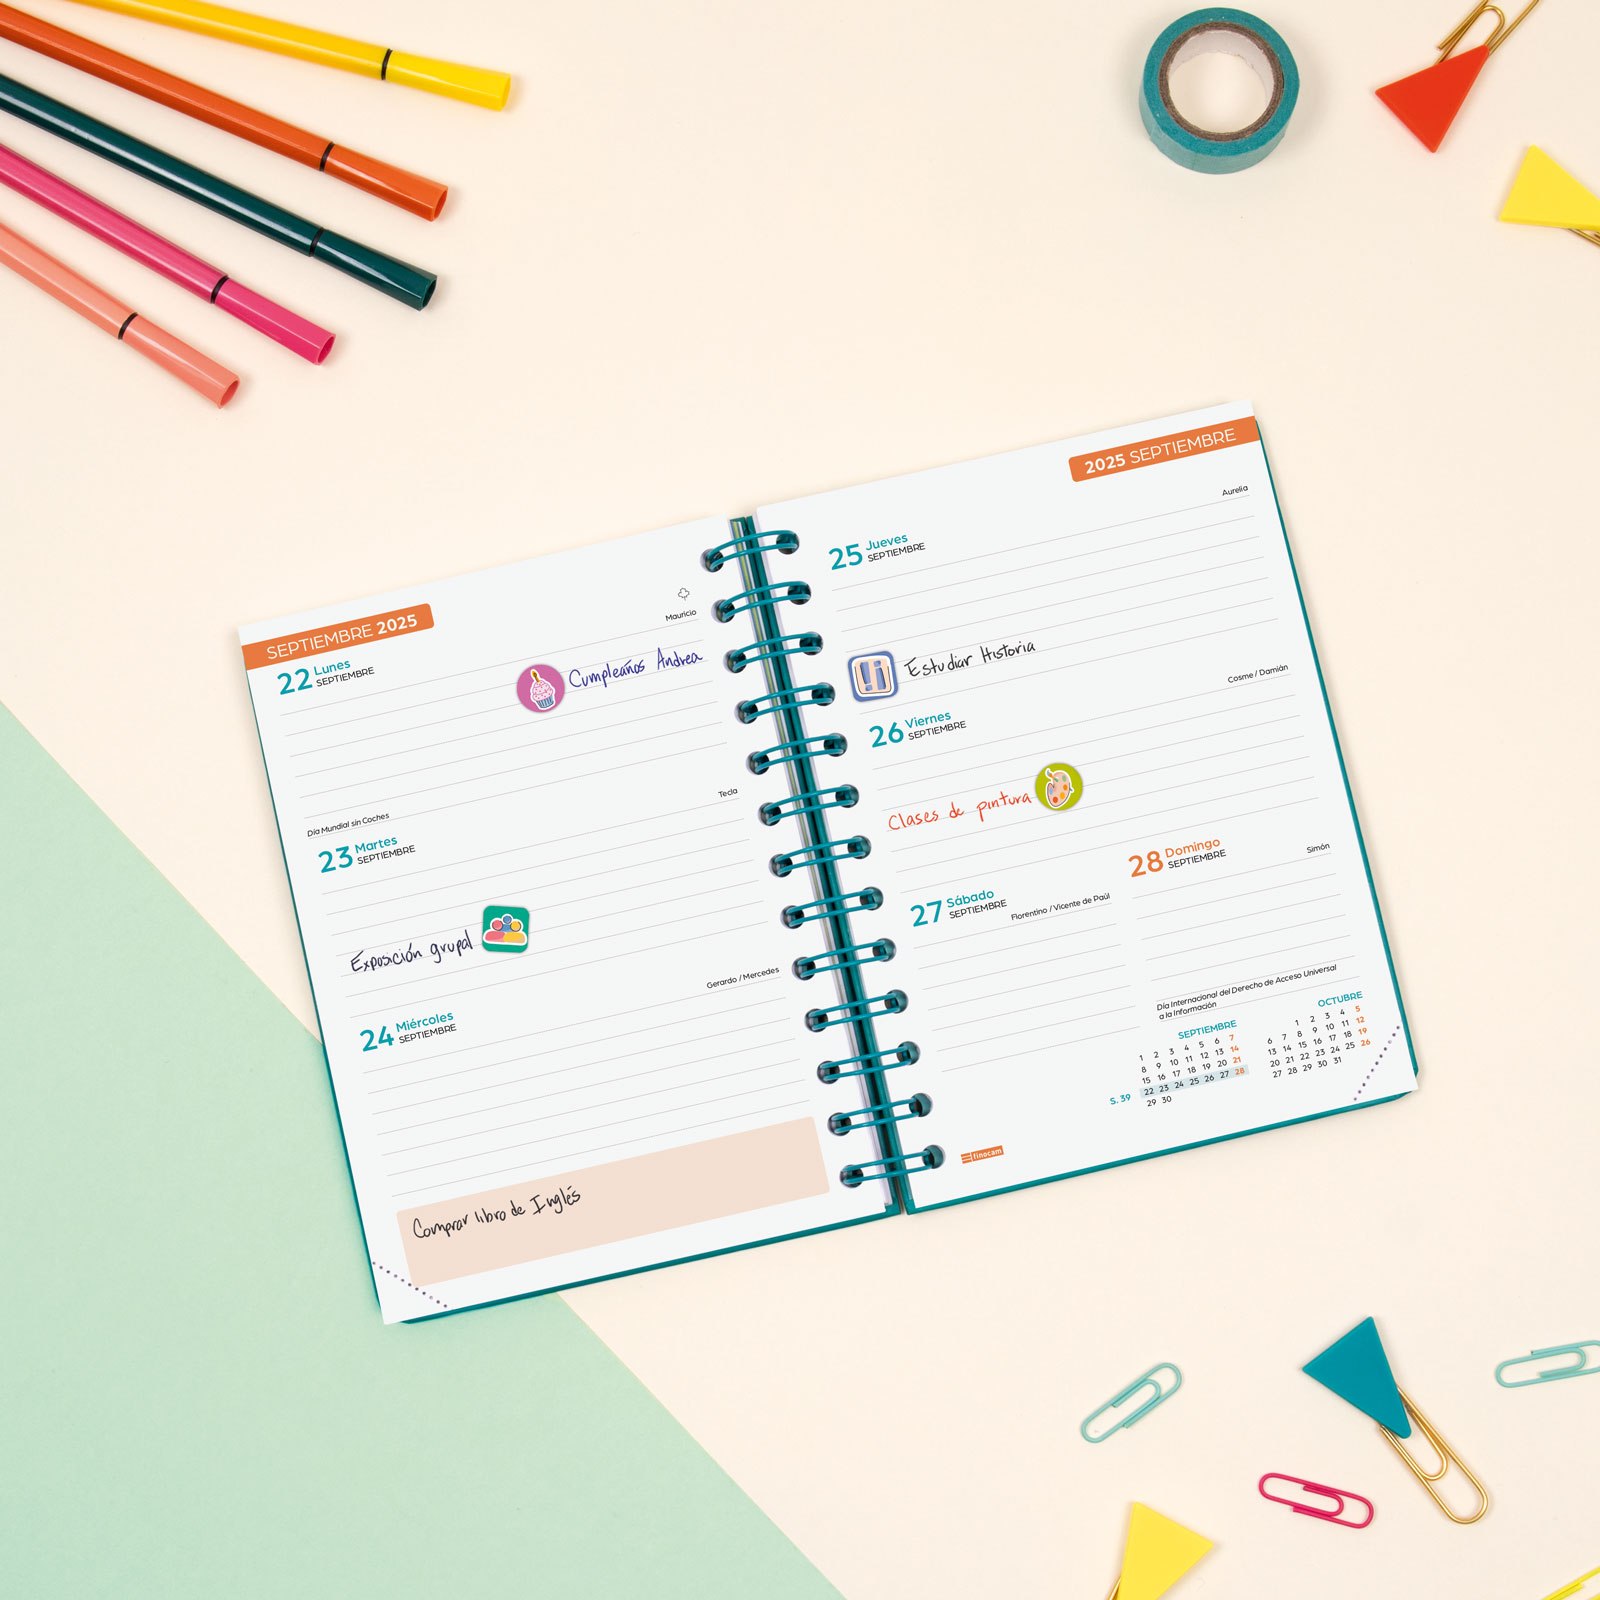 SEPTIEMBRE 2025
Mauricio
22 Lunes
SEPTIEMBRE
Cumpleaños Andrea
Día Mundial sin Coches
Tecla
23 Martes
SEPTIEMBRE
Exposición grupal
Gerardo / Mercedes
24 Miércoles
SEPTIEMBRE
Comprar libro de Inglés
2025 SEPTIEMBRE
Aurelia
25 Jueves
SEPTIEMBRE
Estudiar Historia
Cosme / Damián
26 Viernes
SEPTIEMBRE
Clases de pintura
27 Sábado
SEPTIEMBRE
Florentino / Vicente de Paúl
28 Domingo
SEPTIEMBRE
Simón
Día Internacional del Derecho de Acceso Universal
a la Información
SEPTIEMBRE
1 2 3 4 5 6 7
8 9 10 11 12 13 14
15 16 17 18 19 20 21
S. 39 22 23 24 25 26 27 28
29 30
OCTUBRE
1 2 3 4 5
6 7 8 9 10 11 12
13 14 15 16 17 18 19
20 21 22 23 24 25 26
27 28 29 30 31
finocam